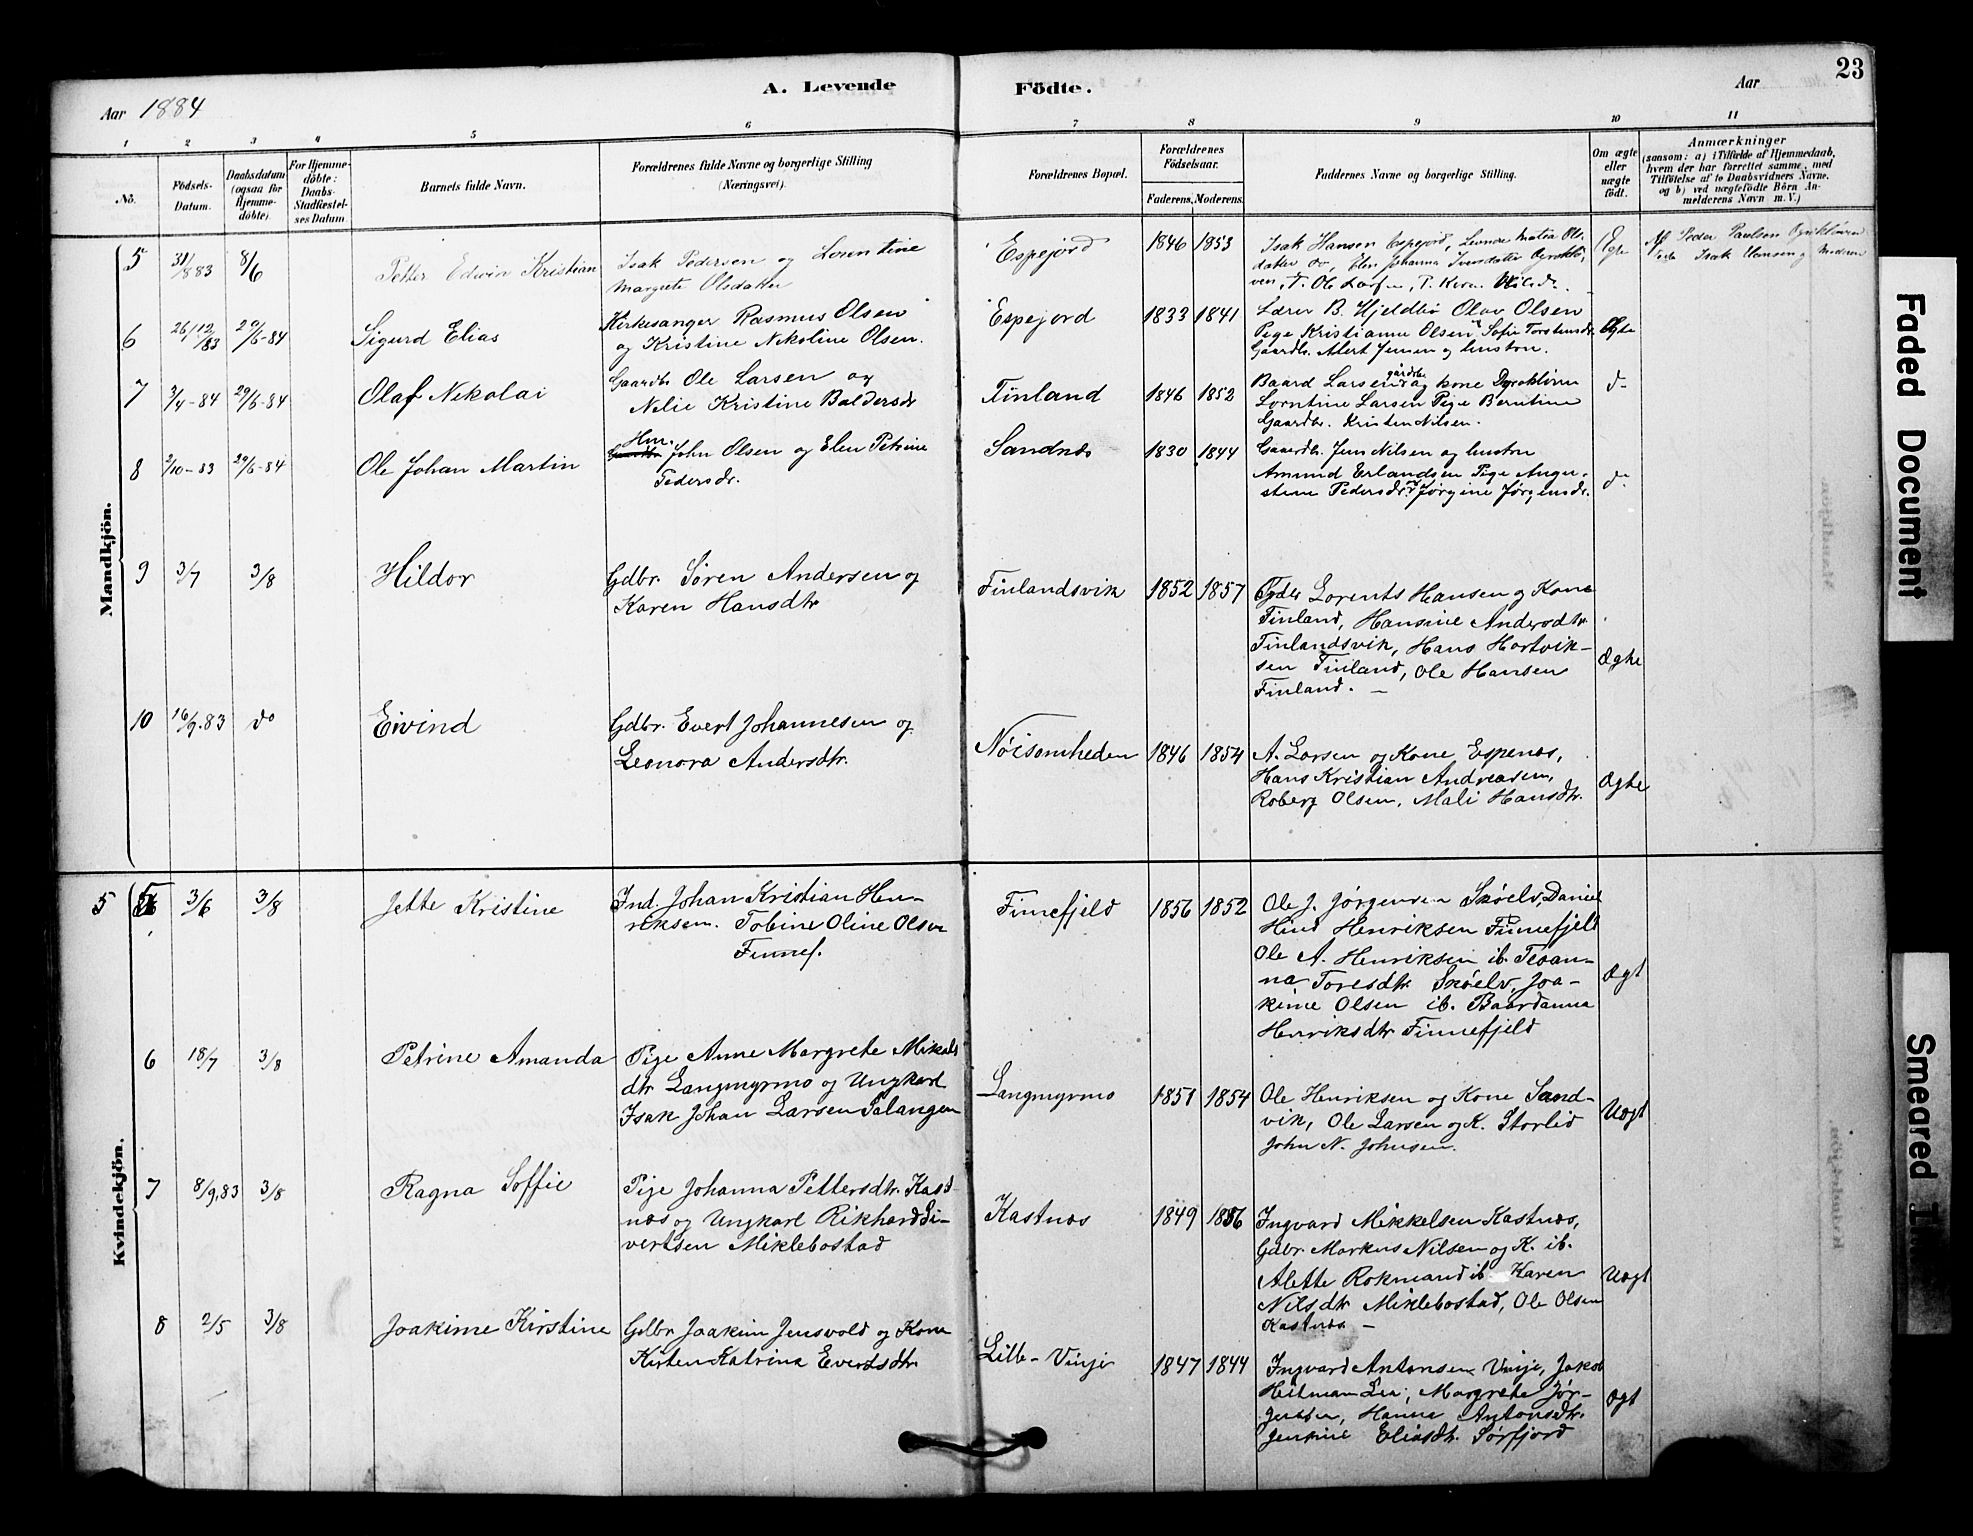 23
A. Levende Födte.
Aar 1884
Aar
1 2 3 4 5 6 7 8 9 10 11
No.
Födsels-
Datum.
Daabsdatum
(ogsaa for
Hjemme-
döbte).
For Hjemme-
döbte:
Daabs-
Stadfæstel-
ses Datum.
Barnets fulde Navn.
Forældrenes fulde Navne og borgerlige Stilling
(Næringsvei).
Forældrenes Bopæl.
Forældrenes
Födselsaar.
Faderens. Moderens.
Faddernes Navne og borgerlige Stilling.
Om ægte
eller
uægte
födt.
Anmærkninger
(saasom: a) i Tilfælde af Hjemmedaab,
hvem der har forrettet samme, med
Tilföielse af to Daabsvidners Navne,
og b) ved uægtefödte Börn An-
melderens Navn m. V.)
Mandkjön.
5 31/8 83 8/6 Petter Edvin Kristian
Isak Pedersen og Lorentine
Margrete Olsdatter
Espejord 1846 1853
Isak Hansen Espejord,
Ægte
Af Peder Paulsen
6 26/12/83 29/6-84 Sigurd Elias
Kirkesanger Rasmus Olsen
og Kristine Nikoline Olsen.
Espejord 1833 1841
Lærer B. Hjeldbø Olav Olsen
Pige Kristianne Olsen Sofie Torstensdr.
Gaardbr. Albert Jensen og hustru.
Ægte
7 3/4-84 29/6-84 Olaf Nikolai
Gaardbr Ole Larsen og
Nelie Kristine Baldersdr
Finland 1846 1852
Baard Larsen gårdbr og kone Dyrekløven
Lorntine Larsen Pige Berntine
Gaardbr. Kristen Nilsen.
do
8 2/10-83 29/6-84 Ole Johan Martin
Hm. John Olsen og Elen Petrine
Pedersdr.
Sandnes 1830 1844
Gaardbr. Jens Nilsen og hustru
Amund Erlandsen Pige Augu-
stine Pedersdr. Jørgine Jørgensdr.
do
9 3/7 3/8 Hildor
Gdbr. Søren Andersen og
Karen Hansdtr
Finlandsvik 1852 1857
Lorents Hansen og Kone
Finland, Hansine Andersdtr
Finlandsvik, Hans Hartvik-
sen Finland, Ole Hansen
Finland. –
Ægte
10 16/9.83 do Eivind
Gdbr. Evert Johannesen og
Leonora Andersdtr.
Nöisomheden 1846 1854
A. Larsen og Kone Espenes,
Hans Kristian Andreasen,
Roberg Olsen, Mali Hansdtr.
Ægte
Kvindekjön.
5 3/6 3/8 Jette Kristine
Ind. Johan Kristian Hen-
riksen. Tobine Oline Olsen
Finnef.
Finnefjeld 1856 1852
Ole J. Jörgensen Sköelv, Daniel
Hind Henriksen Finnefjeld
Ole A. Henriksen ib. Tean-
na Toresdtr Sköelv, Joa-
kime Olsen ib. Baardanna
Henriksdtr Finnefjeld
Ægt
6 18/7 3/8 Petrine Amanda
Pige Anne Margrete Mikals
dtr Langmyrmo og Ungkarl
Isak Johan Larsen Salangen
Langmyrmo 1851 1854
Ole Henriksen og Kone Sand-
vik, Ole Larsen og K. Storlid
John N. Johnsen.
Uægt
7 8/9.83 3/8 Ragna Soffie
Pige Johanna Pettersdtr. Kast-
nes og Ungkarl Rikhard Si-
vertsen Miklebostad
Kastnes 1849 1856
Ingvard Mikkelsen Kastnes,
Gdbr. Markus Nilsen og K. ib.
Alette Rokmand ib Karen
Nilsdtr Miklebostad, Ole Olsen
Kastnes –
Uægt
8 2/5 3/8 Joakime Kirstine
Gdbr Joakim Jensvold og Kone
Kirsten Katrina Evertsdtr
Lille-Vinje 1847 1844
Ingvard Antonsen Vinje, Jakob
Heitman Lea, Margrete Jör-
gensen, Hanna Antonsdtr.
Jensine Eliasdtr. Sörfjord
Ægt
Faded Document
Smeared